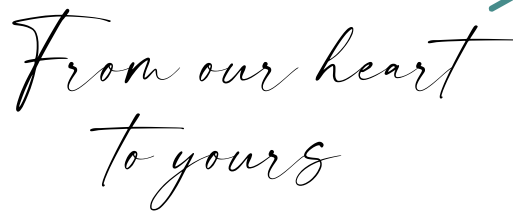 From our heart
to yours